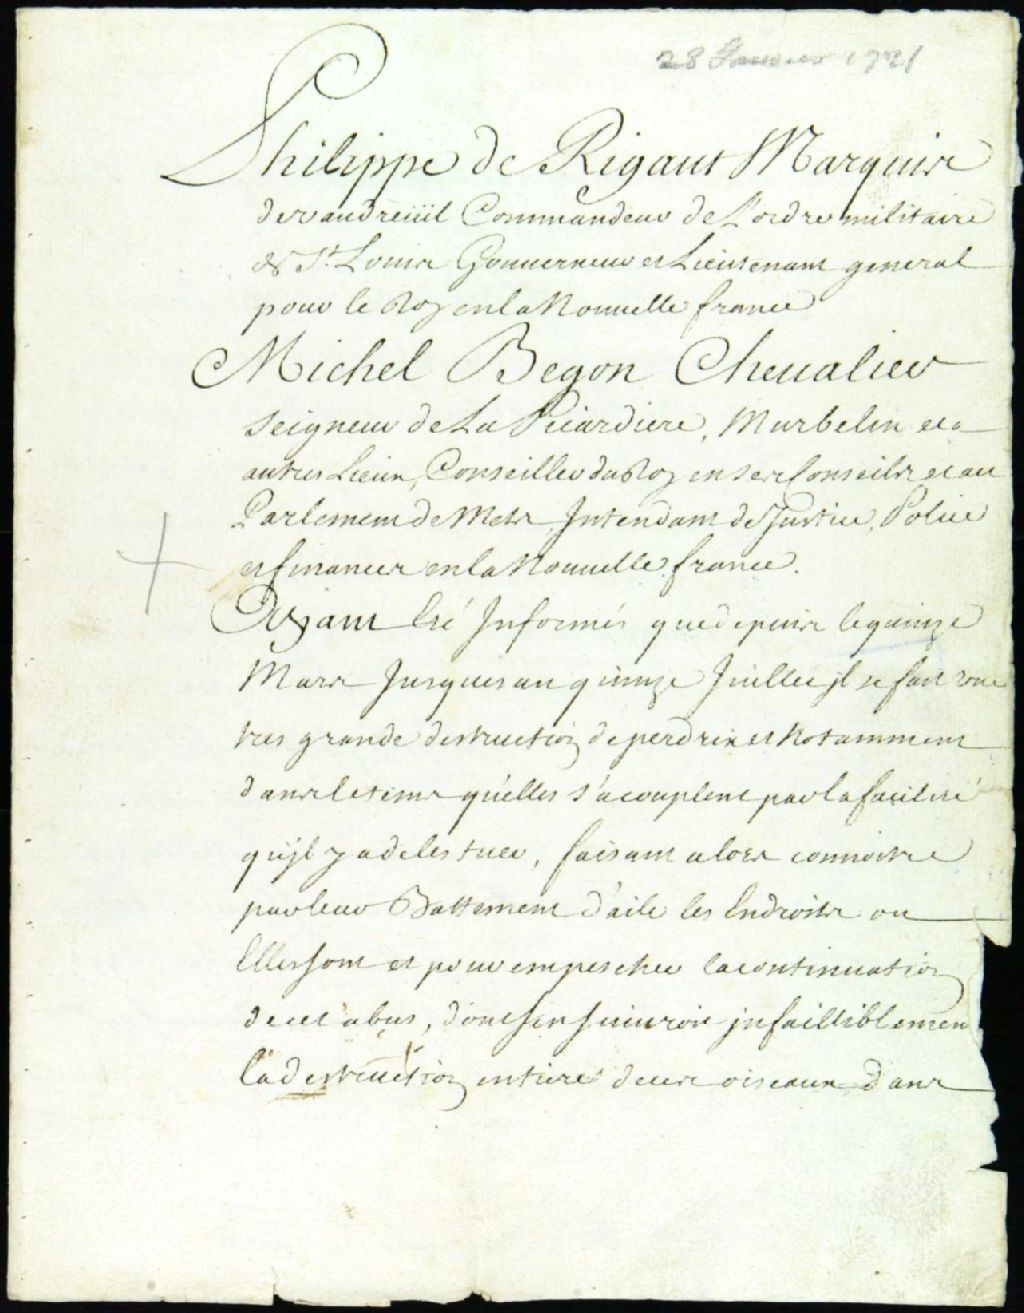 28 Janvier 1721
Philippe de Rigaut Marquis
de vaudreüil Commandeur de L'ordre militaire
de St. Louis Gouuerneur et Lieutenant general
pour le Roy en la Nouuelle france
Michel Begon Cheualier
seigneur de La Picardiere, Murbelin et
autres Lieux, Conseiller du Roy en ses Conseils et au
Parlement de Mets Intendant de Justice, Police
et finances en la Nouuelle france.
Ayant Eté Informés que depuis le quinze
Mars Jusques au quinze Juillet jl se fait une
tres grande destruction de perdrix et Notamment
dans le tems qu'elles s'acouplent par la facilité
qu'jl y a de les tuer, faisant alors connoitre
par leur Battement d'aile les Endroits ou
Elles sont et pour empescher la continuation
de cet abus, d'ont s'en suiuroit jnfailliblemen
la destruction entiere de ces oiseaux dans